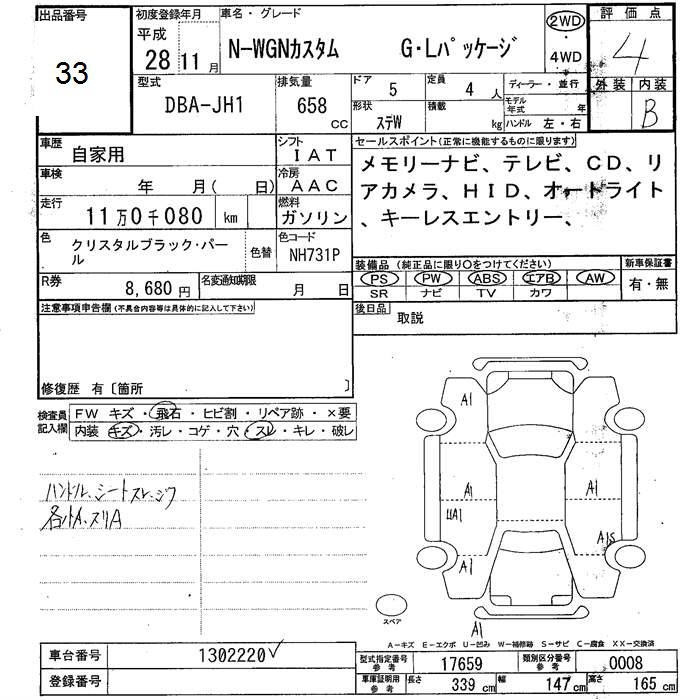 出品番号
33
初度登録年月
平成
28 11月
車名・グレード
N-WGNカスタム G・Lパッケージ
2WD
・
4WD
評価点
4
外装 内装
B
型式
DBA-JH1
排気量
658
CC
ドア 5
定員 4 人
ディーラー・並行
形状 ステW
積載 kg
モデル年式 年
ハンドル 左・右
車歴 自家用
シフト IAT
車検 年 月( 日)
冷房 AAC
走行 11万0千080 km
燃料 ガソリン
色 クリスタルブラック・パール
色替
色コード NH731P
R券 8,680円
名変通知期限 月 日
セールスポイント(正常に機能するものに限ります)
メモリーナビ、テレビ、CD、リ
アカメラ、HID、オートライト
、キーレスエントリー、
装備品(純正品に限り○をつけてください)
PS PW ABS エアB AW
SR ナビ TV カワ
新車保証書
有・無
注意事項申告欄(不具合内容等は具体的に記入して下さい)
後日品 取説
修復歴 有〔箇所 〕
検査員記入欄
FW キズ・飛石・ヒビ割・リペア跡・×要
内装 キズ・汚レ・コゲ・穴・スレ・キレ・破レ
ハンドル、シートスレ、シワ
A1
A1
A1
UA1
A1S
A1
スペア
A1
A-キズ E-エクボ U-凹み W-補修跡 S-サビ C-腐食 XX-交換済
車台番号 1302220
登録番号
型式指定番号参考 17659
類別区分番号参考 0008
車庫証明用参考 長さ 339cm 幅 147cm 高さ 165cm